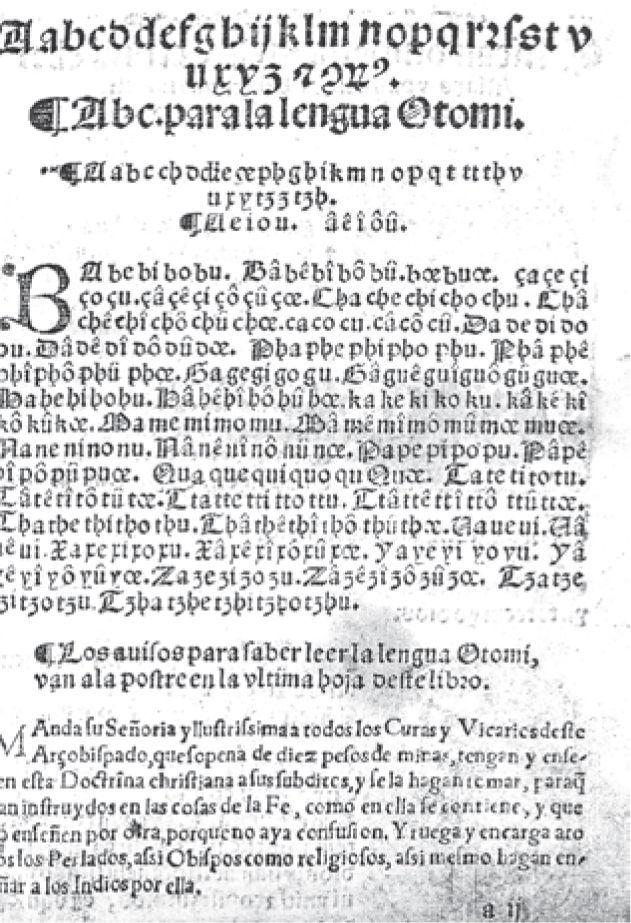 A a b c d d e f g h i j k l m n o p q r ꝛ s s t v
u x y ʒ ⁊ ꝯ ꝝ ꝰ.
¶ Abc. para la lengua Otomi.
¶ A a b c ch d đ e œ ph g h i k m n o p q t tt th v
u x y tʒ ʒ tʒh.
¶ A e i o u. â ê î ô û.
BA be bi bo bu. Bâ bê bî bô bû. bœ buœ. ça çe çi
ço çu. çâ çê çî çô çû çœ. Cha che chi cho chu. Châ
chê chî chô chû chœ. ca co cu. câ cô cû. Da de di do
du. Dâ dê dî dô dû dœ. Pha phe phi pho phu. Phâ phê
phî phô phû phœ. Ga ge gi go gu. Gâ guê guî guô gû guœ.
Ha he hi ho hu. Hâ hê hî hô hû hœ. ka ke ki ko ku. kâ kê kî
kô kû kœ. Ma me mi mo mu. Mâ mê mî mô mû mœ muœ.
Na ne ni no nu. Nâ nê nî nô nû nœ. Pa pe pi po pu. Pâ pê
pî pô pû puœ. Qua que qui quo qu Quœ. Ta te ti to tu.
Tâ tê tî tô tû tœ. Tta tte tti tto ttu. Ttâ ttê ttî ttô ttû ttœ.
Tha the thi tho thu. Thâ thê thî thô thû thœ. Ua ue ui. Uâ
uê ui. Xa xe xi xo xu. Xâ xê xî xô xû xœ. Ya ye yi yo yu. Yâ
yê yî yô yû yœ. Za ʒe ʒi ʒo ʒu. Zâ ʒê ʒî ʒô ʒû ʒœ. Tʒa tʒe
ʒi tʒo tʒu. Tʒha tʒhe tʒhi tʒho tʒhu.
¶ Los auisos para saber leer la lengua Otomi,
van ala postre en la vltima hoja deste libro.
MAnda su Señoria yllustrissima a todos los Curas y Vicarios deste
Arçobispado, que so pena de diez pesos de minas, tengan y ense-
en esta Doctrina christiana a sus subditos, y se la hagan tomar, paraq̃
an instruydos en las cosas de la Fe, como en ella se contiene, y que
o enseñen por otra, porque no aya confusion. Y ruega y encarga a to
os los Perlados, assi Obispos como religiosos, assi mesmo hagan en-
ñar a los Indios por ella.
a ij